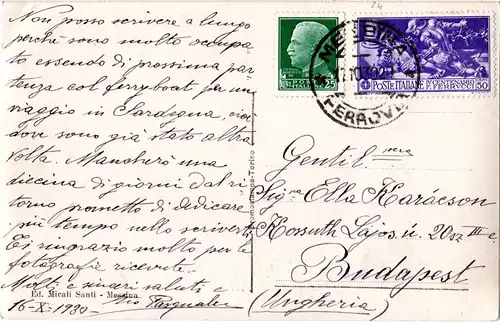 Non posso scrivere a lungo
perché sono molto occupa-
to essendo di prossima par-
tenza col ferryboat per un
viaggio in Sardegna, cioè
dove sono già stato altra
volta. Mancherò una
diecina di giorni. Dal ri-
torno prometto di dedicare
più tempo nello scriverti.
Ti ringrazio molto per le
fotografie ricevute.
Molti e cari saluti e
Pasquale
16-X-1930
Ed. Micali Santi - Messina
24
MESSINA
FERROVIA
25
POSTE ITALIANE
50
Gentil.ma
Sig.ra Ella Karácson
Kossuth Lajos ú. 20sz III e
Budapest
(Ungheria)